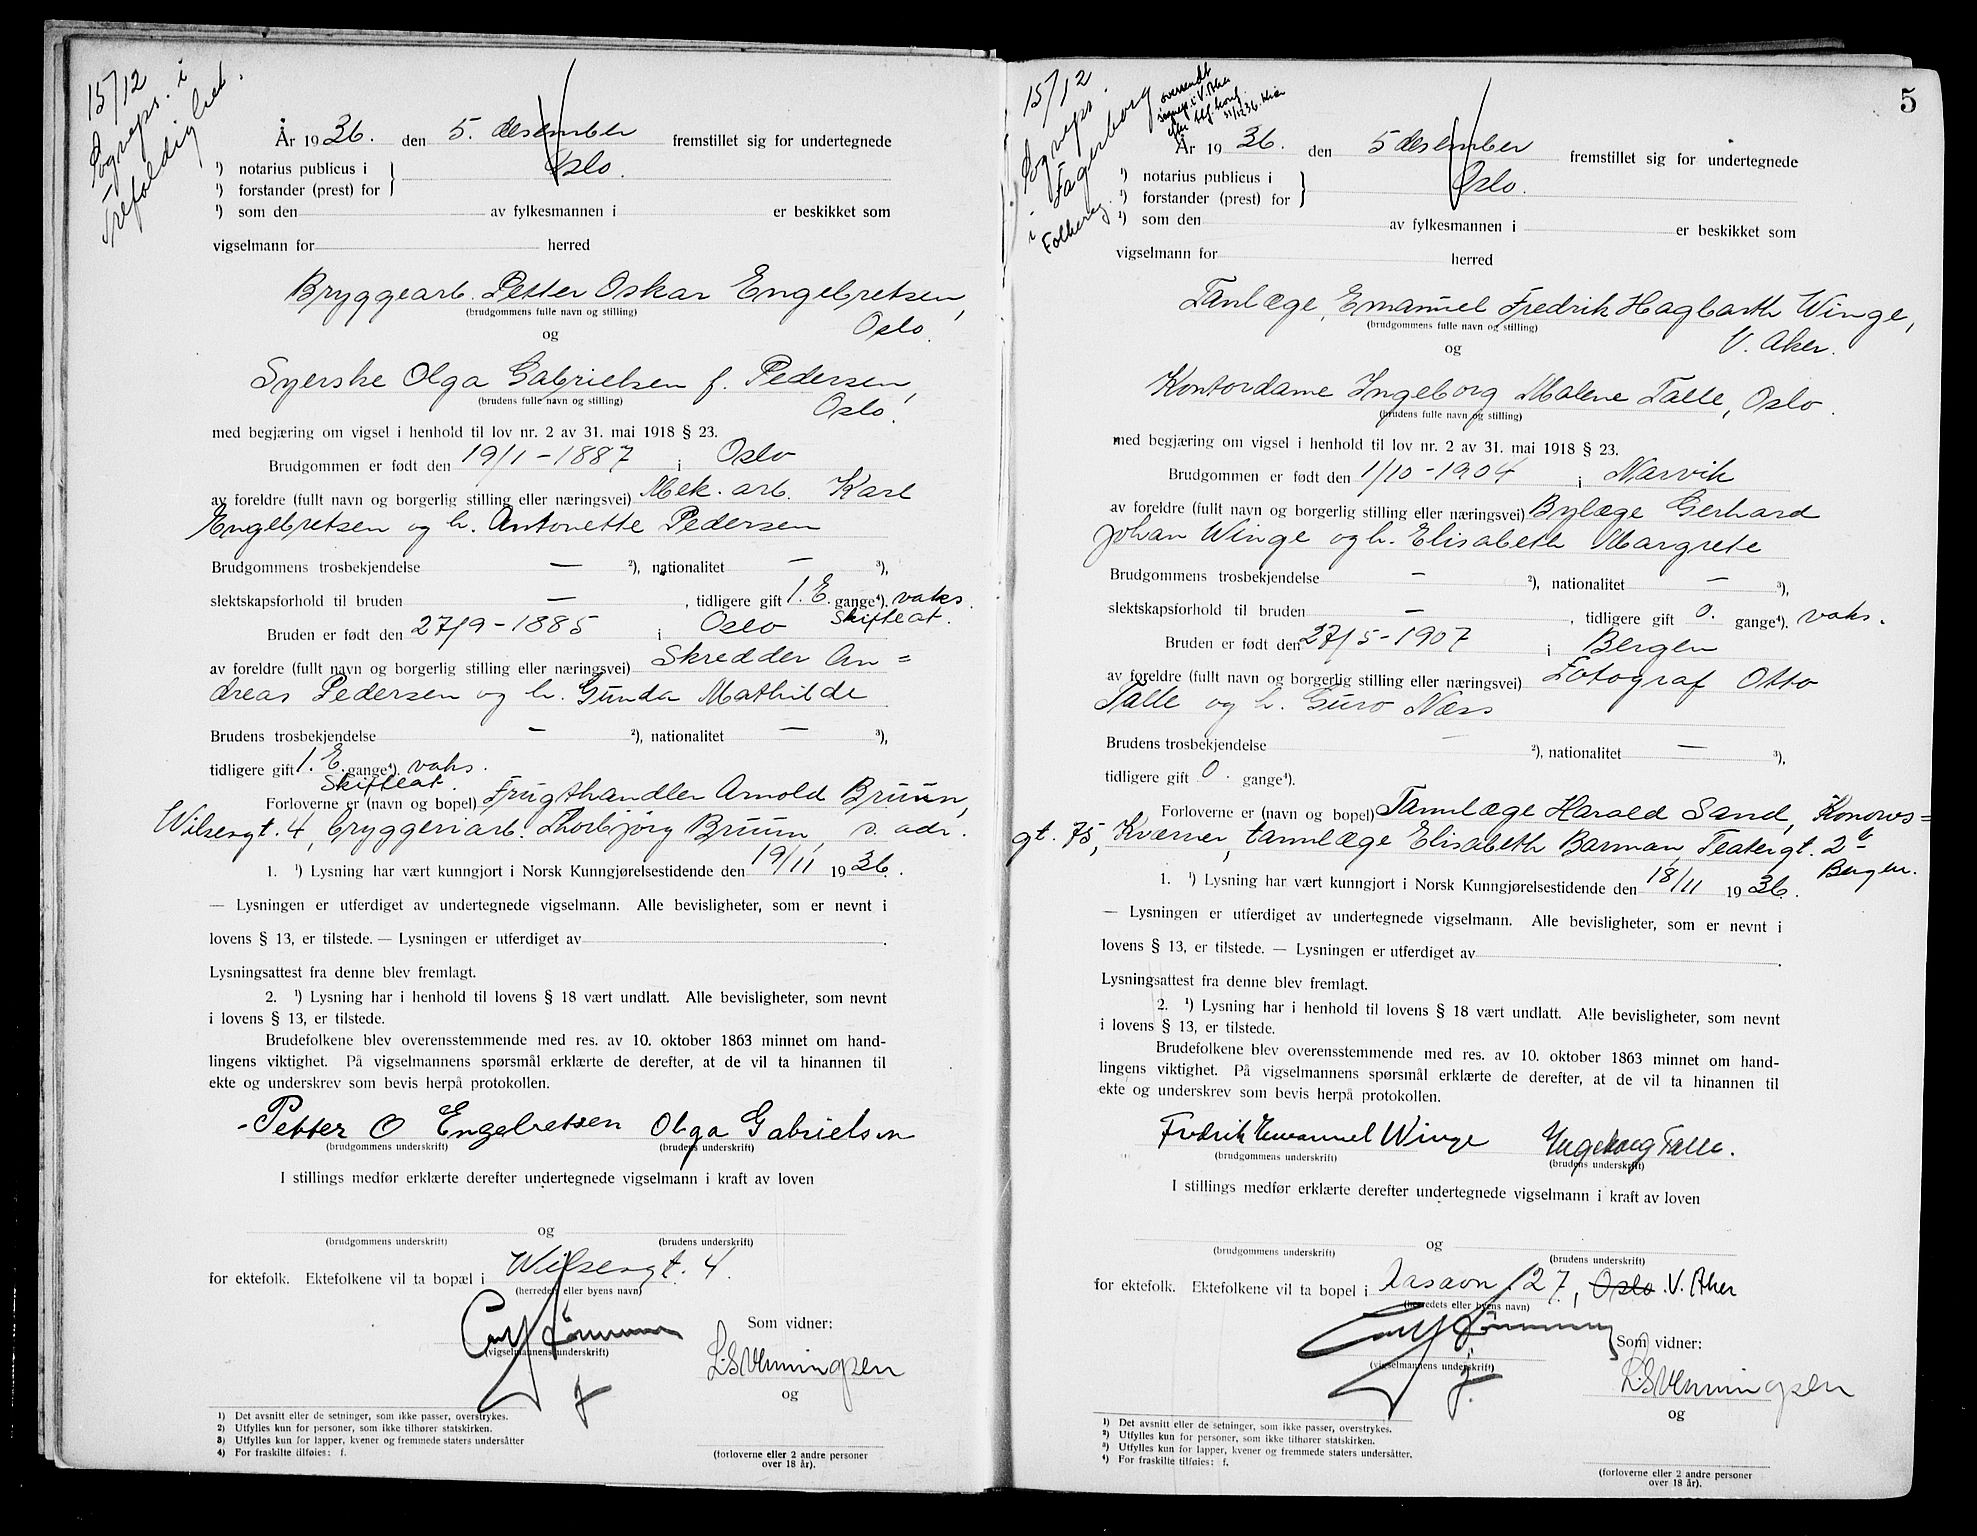 15/12
Sogneps. i
Trefoldighet.
År 1936. den 5. desember fremstillet sig for undertegnede
¹) notarius publicus i
Oslo.
¹) forstander (prest) for
¹) som den av fylkesmannen i er beskikket som
vigselmann for herred
Bryggearb. Petter Oskar Engebretsen,
(brudgommens fulle navn og stilling)
Oslo.
og
Syerske Olga Gabrielsen f. Pedersen,
(brudens fulle navn og stilling)
Oslo.
med begjæring om vigsel i henhold til lov nr. 2 av 31. mai 1918 § 23.
Brudgommen er født den 19/1-1887 i Oslo
av foreldre (fullt navn og borgerlig stilling eller næringsvei) Mek. arb. Karl
Engebretsen og h. Antonette Pedersen
Brudgommens trosbekjendelse — ²), nationalitet — ³),
slektskapsforhold til bruden — , tidligere gift 1. E. gange⁴). vaks.
Skifteat.
Bruden er født den 27/9-1885 i Oslo
av foreldre (fullt navn og borgerlig stilling eller næringsvei) Skredder An=
dreas Pedersen og h. Gunda Mathilde
Brudens trosbekjendelse — ²), nationalitet — ³),
tidligere gift 1. E. gange⁴). vaks.
Skifteat.
Forloverne er (navn og bopel) Frugthandler Arnold Bruun,
Wilsesgt. 4, bryggeriarb. Thorbjørg Bruun, s. adr.
1. ¹) Lysning har vært kunngjort i Norsk Kunngjørelsestidende den 19/11 1936.
— Lysningen er utferdiget av undertegnede vigselmann. Alle bevisligheter, som er nevnt i
lovens § 13, er tilstede. — Lysningen er utferdiget av .
Lysningsattest fra denne blev fremlagt.
2. ¹) Lysning har i henhold til lovens § 18 vært undlatt. Alle bevisligheter, som nevnt
i lovens § 13, er tilstede.
Brudefolkene blev overensstemmende med res. av 10. oktober 1863 minnet om hand-
lingens viktighet. På vigselmannens spørsmål erklærte de derefter, at de vil ta hinannen til
ekte og underskrev som bevis herpå protokollen.
Petter O Engebretsen Olga Gabrielsen
(brudgommens underskrift) (brudens underskrift)
I stillings medfør erklærte derefter undertegnede vigselmann i kraft av loven
og
(brudgommens underskrift) (brudens underskrift)
for ektefolk. Ektefolkene vil ta bopæl i Wilsesgt. 4.
(herredets eller byens navn)
Som vidner:
(vigselmannens underskrift)
L. S. Henningsen
og
1) Det avsnitt eller de setninger, som ikke passer, overstrykes.
2) Utfylles kun for personer, som ikke tilhører statskirken.
3) Utfylles kun for lapper, kvener og fremmede staters undersåtter
4) For fraskilte tilføies: f.
(forloverne eller 2 andre personer
over 18 år).
5
15/12
Sogneps.
i Fagerborg
År 1936. den 5 desember fremstillet sig for undertegnede
¹) notarius publicus i
Oslo.
¹) forstander (prest) for
¹) som den av fylkesmannen i er beskikket som
vigselmann for herred
Tanlæge, Emanuel Fredrik Hagbarth Winge,
(brudgommens fulle navn og stilling)
V. Aker.
og
Kontordame Ingeborg Malene Talle, Oslo.
(brudens fulle navn og stilling)
med begjæring om vigsel i henhold til lov nr. 2 av 31. mai 1918 § 23.
Brudgommen er født den 1/10-1904 i Narvik
av foreldre (fullt navn og borgerlig stilling eller næringsvei) Bylæge Gerhard
Johan Winge og h. Elisabeth Margrete
Brudgommens trosbekjendelse — ²), nationalitet — ³),
slektskapsforhold til bruden — , tidligere gift 0. gange⁴). vaks.
Bruden er født den 27/5-1907 i Bergen
av foreldre (fullt navn og borgerlig stilling eller næringsvei) Fotograf Otto
Talle og h. Guro Næss
Brudens trosbekjendelse — ²), nationalitet — ³),
tidligere gift 0. gange⁴).
Forloverne er (navn og bopel) Tannlæge Harald Sand, Konows=
gt. 75, Kværner, tannlæge Elisabeth Barman, Teatergt. 2b
Bergen.
1. ¹) Lysning har vært kunngjort i Norsk Kunngjørelsestidende den 18/11 1936.
— Lysningen er utferdiget av undertegnede vigselmann. Alle bevisligheter, som er nevnt i
lovens § 13, er tilstede. — Lysningen er utferdiget av .
Lysningsattest fra denne blev fremlagt.
2. ¹) Lysning har i henhold til lovens § 18 vært undlatt. Alle bevisligheter, som nevnt
i lovens § 13, er tilstede.
Brudefolkene blev overensstemmende med res. av 10. oktober 1863 minnet om hand-
lingens viktighet. På vigselmannens spørsmål erklærte de derefter, at de vil ta hinannen til
ekte og underskrev som bevis herpå protokollen.
Fredrik Emanuel Winge Ingeborg Talle.
(brudgommens underskrift) (brudens underskrift)
I stillings medfør erklærte derefter undertegnede vigselmann i kraft av loven
og
(brudgommens underskrift) (brudens underskrift)
for ektefolk. Ektefolkene vil ta bopel i Aasavn. 27, Oslo. V. Aker
(herredets eller byens navn)
Som vidner:
(vigselmannens underskrift)
L. S. Henningsen
og
¹) Det avsnitt eller de setninger, som ikke passer, overstrykes.
²) Utfylles kun for personer, som ikke tilhører statskirken.
³) Utfylles kun for lapper, kvener og fremmede staters undersåtter.
⁴) For fraskilte tilføies: f.
(forloverne eller 2 andre personer
over 18 år).